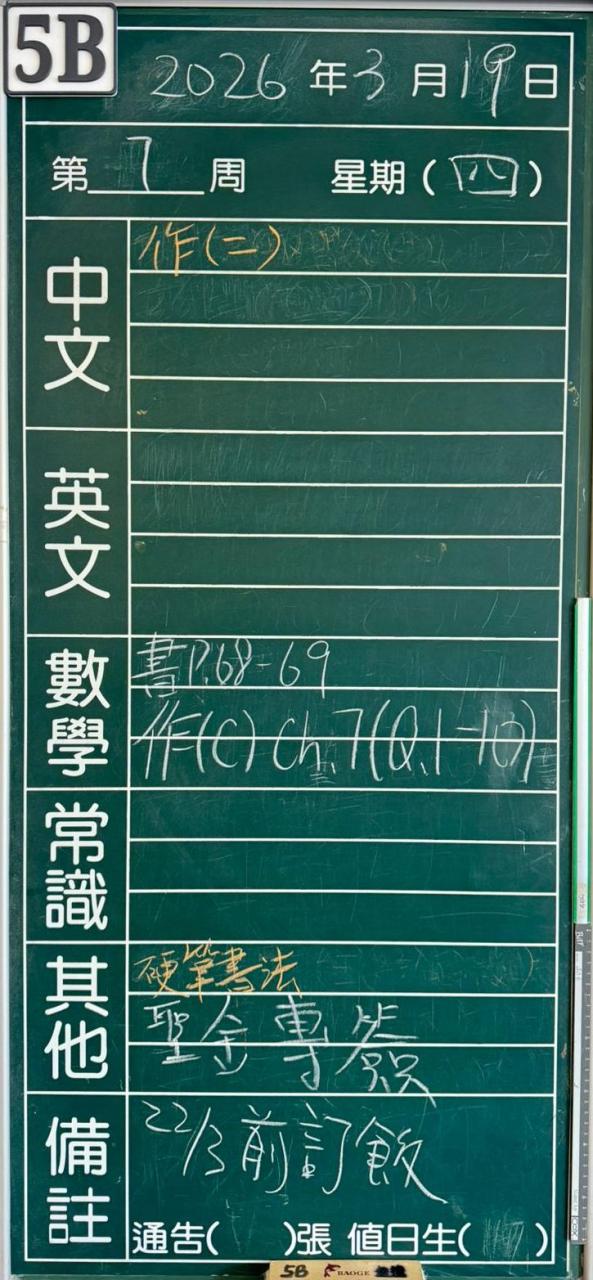 5B
2026年3月19日
第7周 星期(四)
中文
作(二)
英文
數學
書P.68-69
作(C) Ch.7(Q.1-10)
常識
其他
硬筆書法
聖金專簽
備註
22/3前訂飯
通告( )張 值日生( )
5B BAOGE